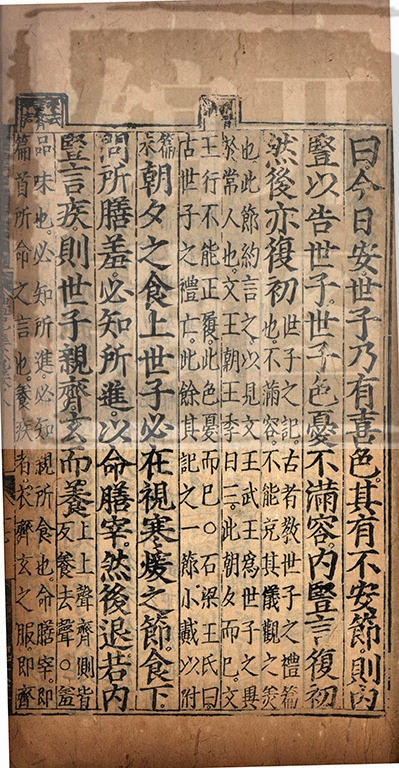 曰今日安世子乃有喜色其有不安節則內
豎以告世子世子色憂不滿容內豎言復初
然後亦復初
世子之記古者教世子之禮篇
也不滿容不能充其儀觀之美
也此節約言之以見文王武王爲世子之異
於常人也文王朝王季日三此朝夕而已文
王行不能正履此色憂而已○石梁王氏曰
古世子之禮亡此餘其記之一節小戴以附
篇
末
朝夕之食上世子必在視寒煖之節食下
問所膳羞必知所進以命膳宰然後退若內
豎言疾則世子親齊玄而養
上上聲齊側皆
反養去聲○羞
品味也必知所進必知親所食也命膳宰即
篇首所命之言也養疾者衣齊玄之服即齊